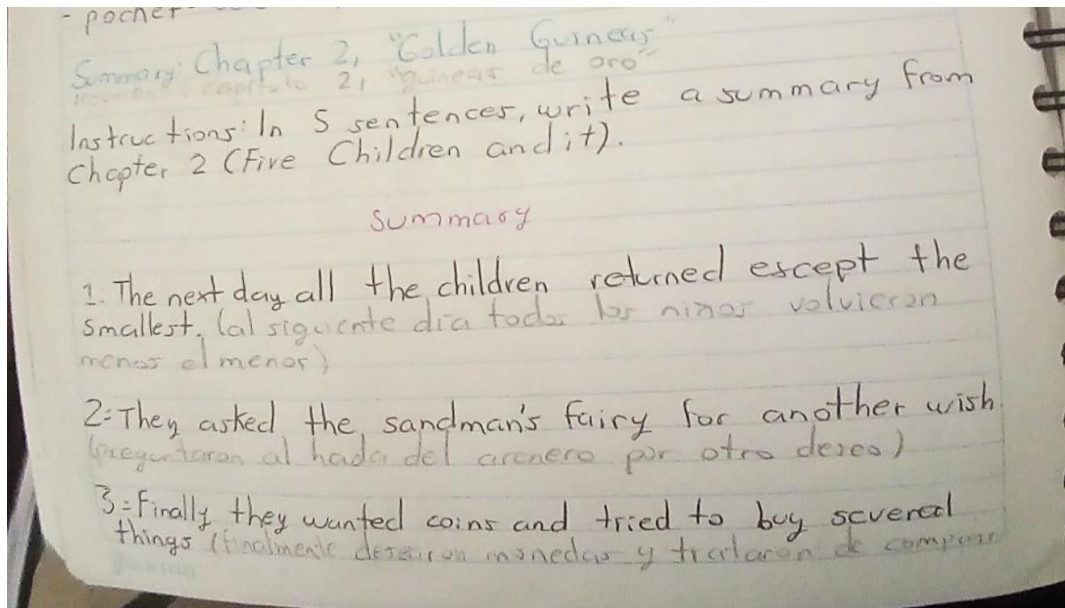 - pocket
Summary: Chapter 2, "Golden Guineas"
capitulo 2, "guineas de oro"
Instructions: In 5 sentences, write a summary from
Chapter 2 (Five Children and it).
Summary
1. The next day all the children returned escept the
smallest. (al siguente dia todos los niños volvieron
menos el menor)
2=They asked the sandman's fairy for another wish
(preguntaron al hada del arenero por otro deseo)
3=Finally they wanted coins and tried to buy severeal
things (finalmente desearon monedas y trataron de comprar